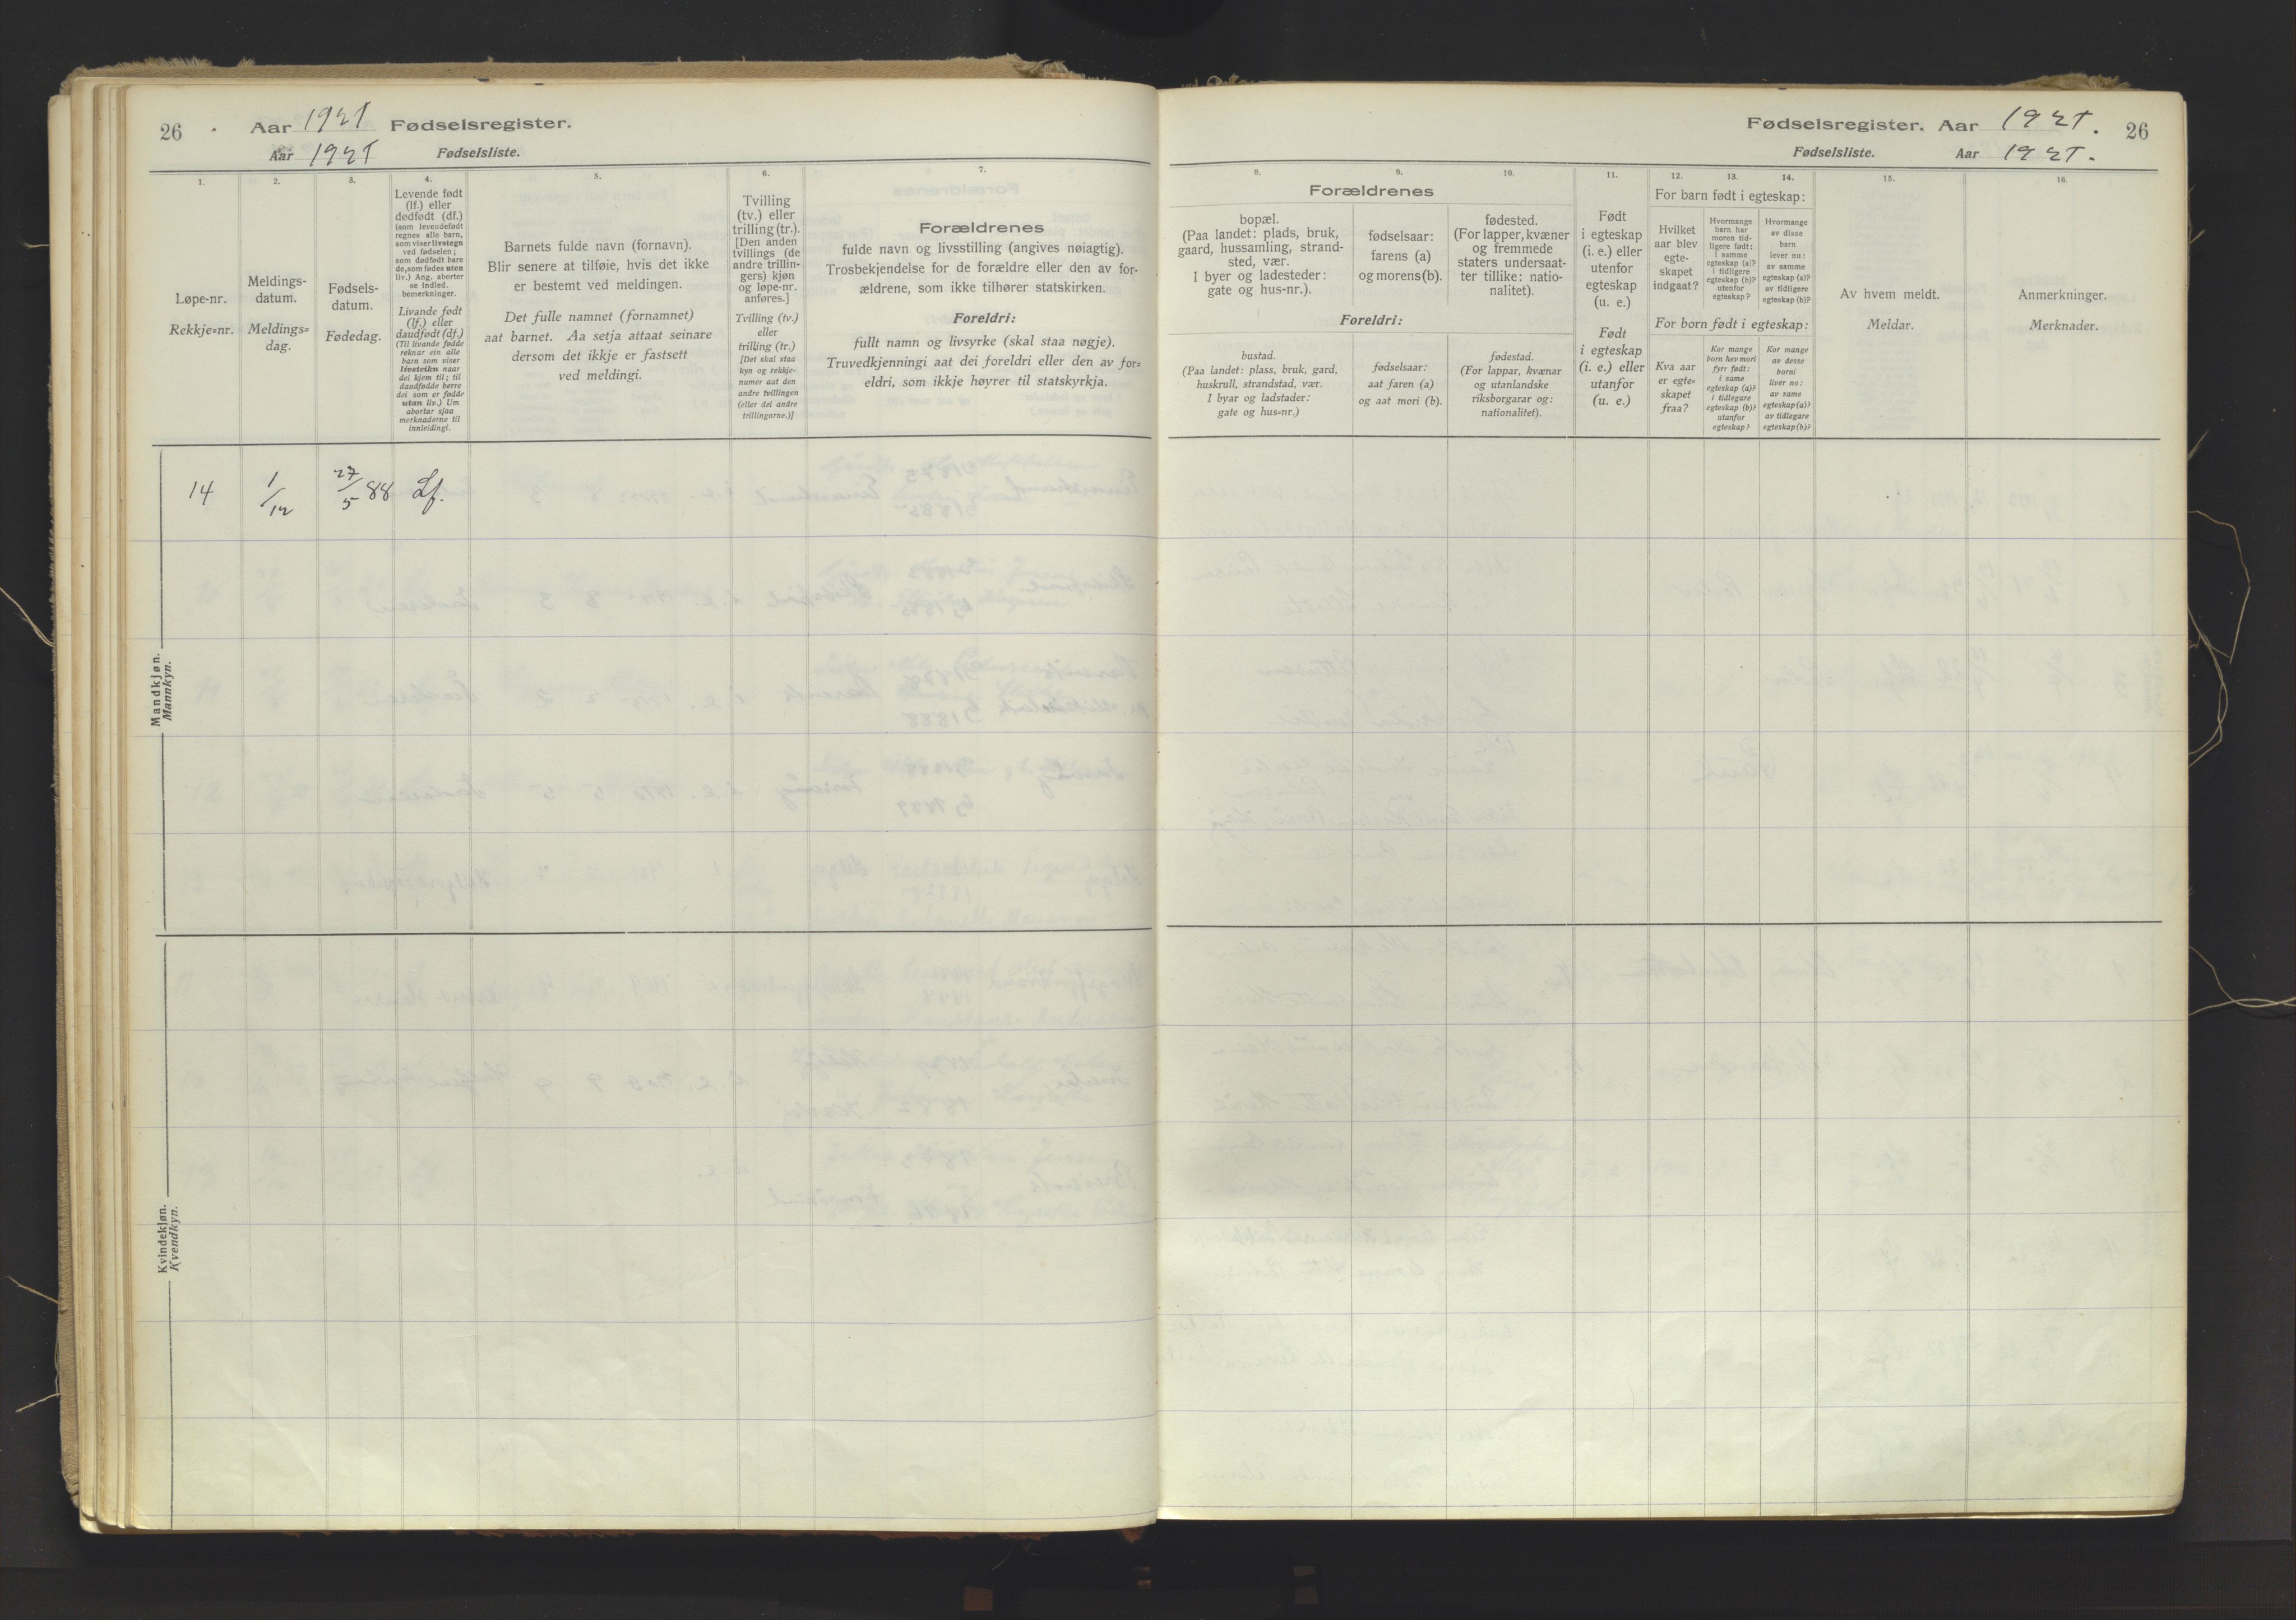 26 Aar 1921 Fødselsregister.
Aar 1921 Fødselsliste.
1.
Løpe-nr.
Rekkje-nr.
2.
Meldings-
datum.
Meldings-
dag.
3.
Fødsels-
datum.
Fødedag.
4.
Levende født
(lf.) eller
dødfødt (df.)
(som levendefødt
regnes alle barn,
som viser livstegn
ved fødselen;
som dødfødt bare
de, som fødes uten
liv.) Ang. aborter
se indled.
bemerkninger.
Livande født
(lf.) eller
daudfødt (df.)
(Til livande fødde
reknar ein alle
barn som viser
livsteikn naar
dei kjem til; til
daudfødde berre
dei som er fødde
utan liv.) Um
abortar sjaa
merknaderne til
innleidingi.
5.
Barnets fulde navn (fornavn).
Blir senere at tilføie, hvis det ikke
er bestemt ved meldingen.
Det fulle namnet (fornamnet)
aat barnet. Aa setja attaat seinare
dersom det ikkje er fastsett
ved meldingi.
6.
Tvilling
(tv.) eller
trilling (tr.).
[Den anden
tvillings (de
andre trillin-
gers) kjøn
og løpe-nr.
anføres.]
Tvilling (tv.)
eller
trilling (tr.)
[Det skal staa
kyn og rekkje-
numer aat den
andre tvillingen
(eller dei andre
trillingarne.)]
7.
Forældrenes
fulde navn og livsstilling (angives nøiagtig).
Trosbekjendelse for de forældre eller den av for-
ældrene, som ikke tilhører statskirken.
Foreldri:
fullt namn og livsyrke (skal staa nøgje).
Truvedkjenningi aat dei foreldri eller den av for-
eldri, som ikkje høyrer til statskyrkja.
Mandkjøn.
Mannkyn.
14 1/12 27/5 88 Lf.
Kvindekjøn.
Kvendkyn.
Fødselsregister. Aar 1921. 26
Fødselsliste. Aar 1921.
8. 9. 10.
Forældrenes
bopæl.
(Paa landet: plads, bruk,
gaard, hussamling, strand-
sted, vær.
I byer og ladesteder:
gate og hus-nr.).
fødselsaar:
farens (a)
og morens (b).
fødested.
(For lapper, kvæner
og fremmede
staters undersaat-
ter tillike: natio-
nalitet).
Foreldri:
bustad.
(Paa landet: plass, bruk, gard,
huskrull, strandstad, vær.
I byar og ladstader:
gate og hus-nr.)
fødselsaar:
aat faren (a)
og aat mori (b).
fødestad.
(For lappar, kvænar
og utanlandske
riksborgarar og:
nationalitet).
11.
Født
i egteskap
(i. e.) eller
utenfor
egteskap
(u. e.)
Født
i egteskap
(i. e.) eller
utanfor
(u. e.)
12. 13. 14.
For barn født i egteskap:
Hvilket
aar blev
egte-
skapet
indgaat?
Hvormange
barn har
moren tid-
ligere født:
i samme
egteskap (a)?
i tidligere
egteskap (b)?
utenfor
egteskap?
Hvormange
av disse
barn
lever nu:
av samme
egteskap (a)?
av tidligere
egteskap (b)?
For born født i egteskap:
Kva aar
er egte-
skapet
fraa?
Kor mange
born hev mori
fyrr født:
i same
egteskap (a)?
i tidlegare
egteskap (b)?
utanfor
egteskap?
Kor mange
av desse
borni
liver no:
av same
egteskap (a)?
av tidlegare
egteskap (b)?
15.
Av hvem meldt.
Meldar.
16.
Anmerkninger.
Merknader.